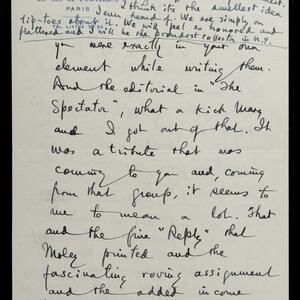 I think its the smallest idea
PARIS I ever heard of. We are simply on
tip-toes about it. We will feel so honored and
flattered and I will be the proudest collector in N.Y.
you were exactly in your own
element while writing them.
And the editorial in "The
Spectator", what a kick Mary
and I got out of that. It
was a tribute that was
coming to you and, coming
from that group, it seems to
me to mean a lot. That
and the fine "Reply" that
Moley printed and the
fascinating roving assignment
and the added income